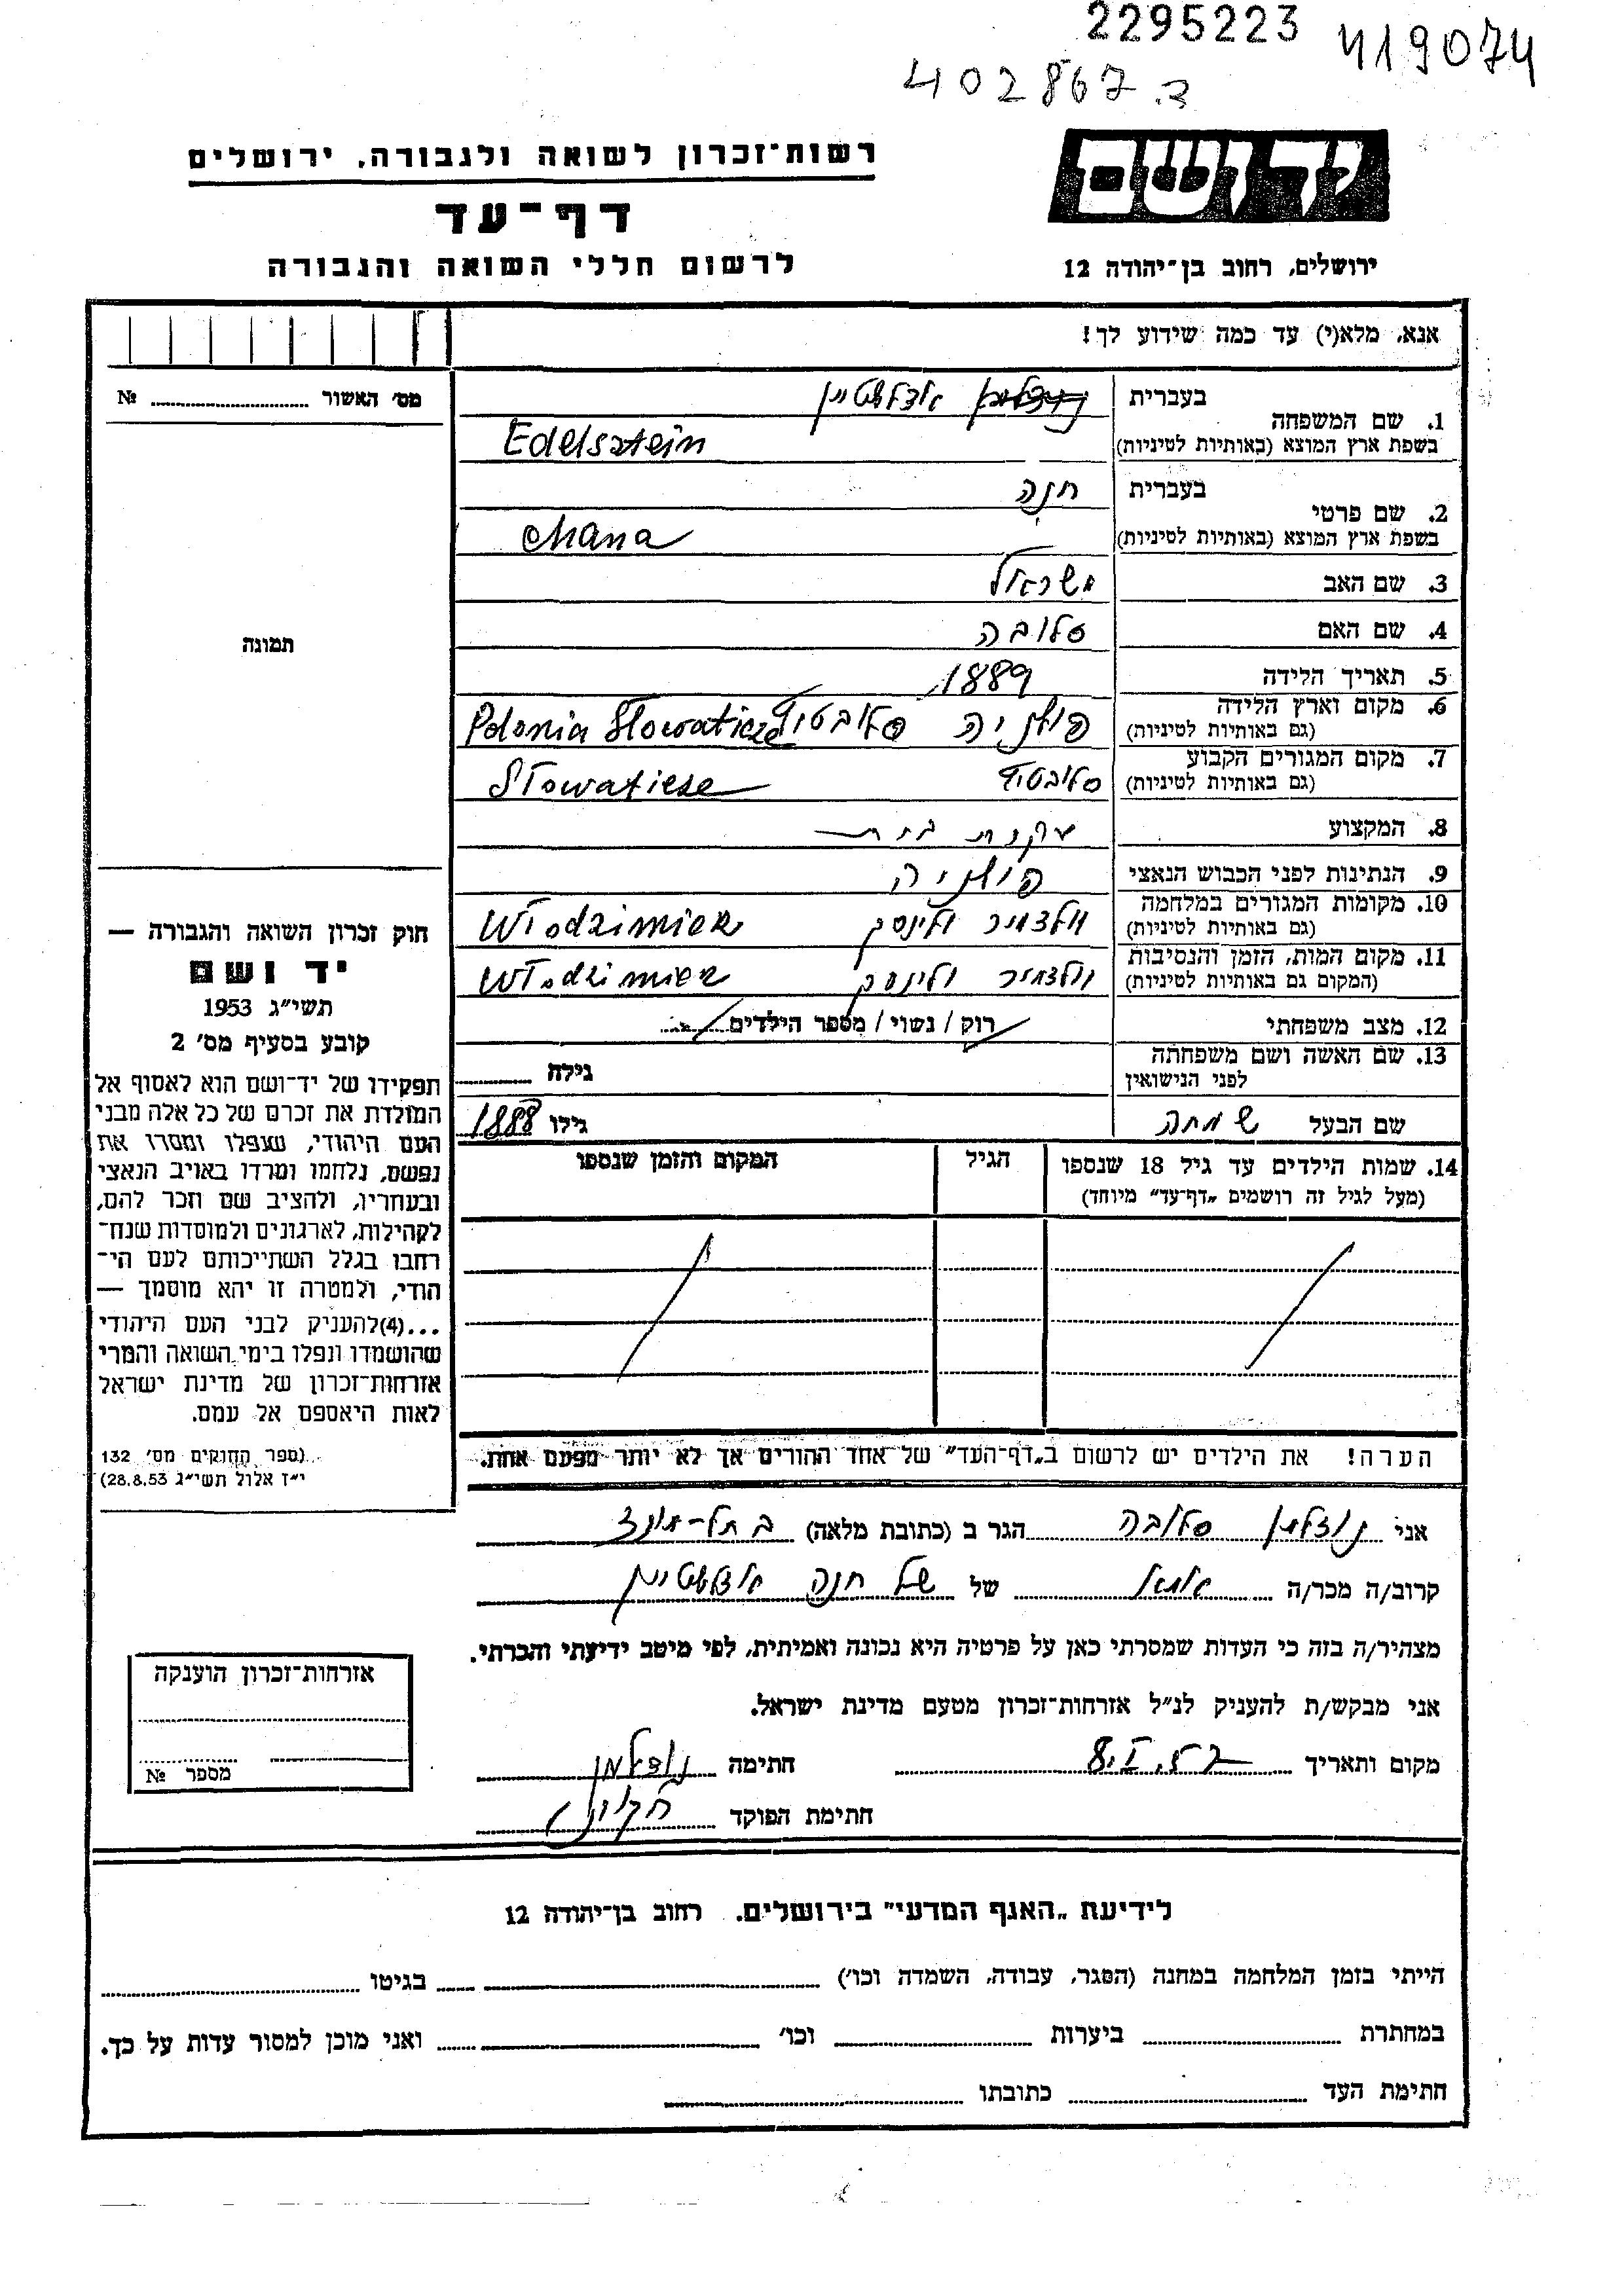 2295223
419074
402867.ב
רשות־זכרון לשואה ולגבורה, ירושלים
יד ושם
דף־עד
לרשום חללי השואה והגבורה
ירושלים, רחוב בן־יהודה 12
אנא, מלא(י) עד כמה שידוע לך!
מס׳ האשור № 
1. שם המשפחה
בעברית אדלשטיין
בשפת ארץ המוצא (באותיות לטיניות) Edelsztein
2. שם פרטי
בעברית חנה
בשפת ארץ המוצא (באותיות לטיניות) Chana
3. שם האב ישראל
4. שם האם סלובה
5. תאריך הלידה 1889
6. מקום וארץ הלידה (גם באותיות לטיניות) פולניה סלובטיץ Polonia Slowaticze
7. מקום המגורים הקבוע (גם באותיות לטיניות) סלובטיץ Slowaticze
8. המקצוע עקרת בית
9. הנתינות לפני הכבוש הנאצי פולניה
10. מקומות המגורים במלחמה (גם באותיות לטיניות) ולדימיר ולינסק Wlodzimierz
11. מקום המות, הזמן והנסיבות (המקום גם באותיות לטיניות) ולדימיר ולינסק Wlodzimierz
12. מצב משפחתי רוק / נשוי / מספר הילדים
13. שם האשה ושם משפחתה לפני הנישואין גילה
שם הבעל שמחה גילו 1888
14. שמות הילדים עד גיל 18 שנספו
(מעל לגיל זה רושמים „דף־עד״ מיוחד)
הגיל
המקום והזמן שנספו
הערה! את הילדים יש לרשום ב„דף־העד״ של אחד ההורים אך לא יותר מפעם אחת.
תמונה
חוק זכרון השואה והגבורה —
יד ושם
תשי״ג 1953
קובע בסעיף מס׳ 2
תפקידו של יד־ושם הוא לאסוף אל
המולדת את זכרם של כל אלה מבני
העם היהודי, שנפלו ומסרו את
נפשם, נלחמו ומרדו באויב הנאצי
ובעוזריו, ולהציב שם וזכר להם,
לקהילות, לארגונים ולמוסדות שנח־
רבו בגלל השתייכותם לעם הי־
הודי, ולמטרה זו יהא מוסמך —
...(4) להעניק לבני העם היהודי
שהושמדו ונפלו בימי השואה והמרי
אזרחות־זכרון של מדינת ישראל
לאות היאספם אל עמם.
(ספר החוקים מס׳ 132
י״ז אלול תשי״ג 28.8.53)
אני נודלמן סלובה הגר ב (כתובת מלאה) בתל־מונד
קרוב/ה מכר/ה של של חנה אדלשטיין
מצהיר/ה בזה כי העדות שמסרתי כאן על פרטיה היא נכונה ואמיתית, לפי מיטב ידיעתי והכרתי.
אני מבקש/ת להעניק לנ״ל אזרחות־זכרון מטעם מדינת ישראל.
מקום ותאריך 8.I.57 חתימה נודלמן
חתימת הפוקד
אזרחות־זכרון הוענקה
מספר №
לידיעת „האגף המדעי״ בירושלים. רחוב בן־יהודה 12
הייתי בזמן המלחמה במחנה (הסגר, עבודה, השמדה וכו׳) בגיטו
במחתרת ביערות וכו׳ ואני מוכן למסור עדות על כך.
חתימת העד כתובתו